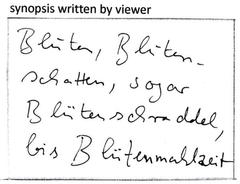 synopsis written by viewer
Blüten, Blüten-
schatten, sogar
Blütenschraddel,
bis Blütenmahlzeit